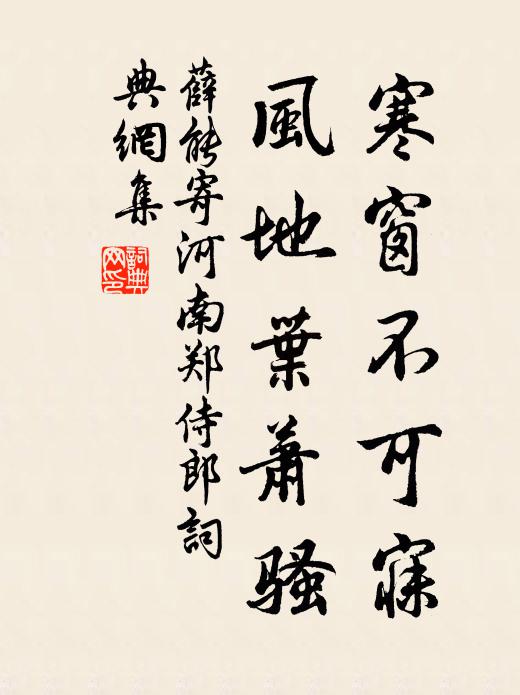 寒窗不可寐
風地葉蕭騷
薛能寄河南郑侍郎詞
典網集
詞典網印